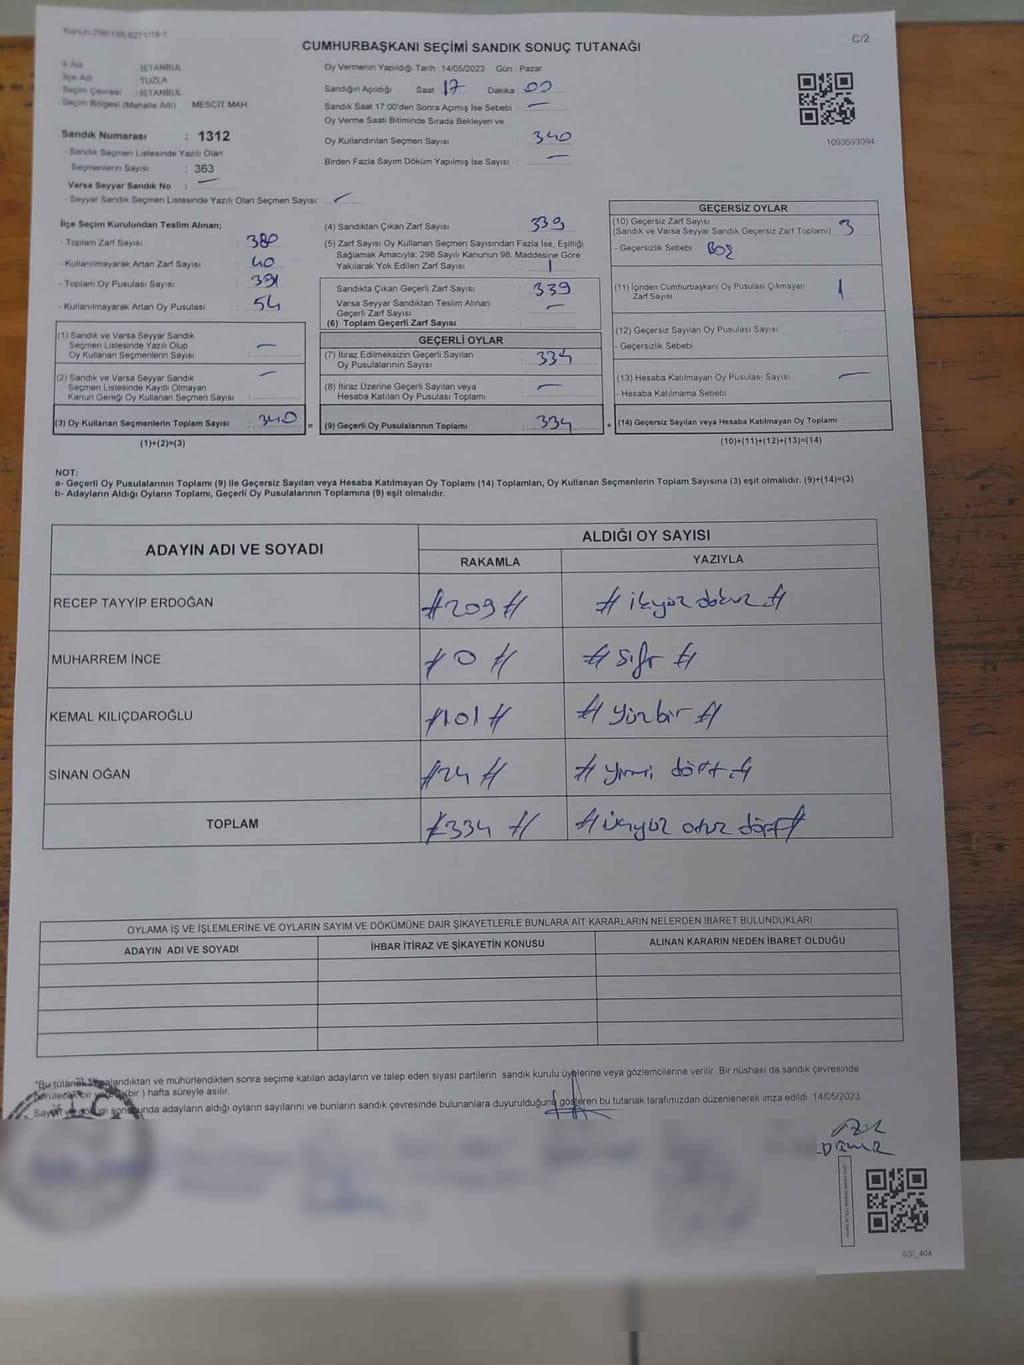 C/2
CUMHURBAŞKANI SEÇİMİ SANDIK SONUÇ TUTANAĞI
İl Adı : İSTANBUL
İlçe Adı : TUZLA
Seçim Çevresi : İSTANBUL
Seçim Bölgesi (Mahalle Adı) MESCİT MAH
Sandık Numarası : 1312
- Sandık Seçmen Listesinde Yazılı Olan
Seçmenlerin Sayısı : 363
Varsa Seyyar Sandık No : —
- Seyyar Sandık Seçmen Listesinde Yazılı Olan Seçmen Sayısı:
Oy Vermenin Yapıldığı Tarih : 14/05/2023 Gün : Pazar
Sandığın Açıldığı Saat 17 Dakika : 00
Sandık Saat 17:00'den Sonra Açımış İse Sebebi : —
Oy Verme Saati Bitiminde Sırada Bekleyen ve
Oy Kullandırılan Seçmen Sayısı : 340
Birden Fazla Sayım Döküm Yapılmış İse Sayısı : —
1093693094
İlçe Seçim Kurulundan Teslim Alınan;
- Toplam Zarf Sayısı : 380
- Kullanılmayarak Artan Zarf Sayısı : 40
- Toplam Oy Pusulası Sayısı : 391
- Kullanılmayarak Artan Oy Pusulası : 54
(1) Sandık ve Varsa Seyyar Sandık
Seçmen Listesinde Yazılı Olup
Oy Kullanan Seçmenlerin Sayısı : —
(2) Sandık ve Varsa Seyyar Sandık
Seçmen Listesinde Kayıtlı Olmayan
Kanun Gereği Oy Kullanan Seçmen Sayısı : —
(3) Oy Kullanan Seçmenlerin Toplam Sayısı : 340 =
(1)+(2)=(3)
(4) Sandıktan Çıkan Zarf Sayısı : 339
(5) Zarf Sayısı Oy Kullanan Seçmen Sayısından Fazla İse, Eşitliği
Sağlamak Amacıyla; 298 Sayılı Kanunun 98. Maddesine Göre
Yakılarak Yok Edilen Zarf Sayısı : 1
Sandıkta Çıkan Geçerli Zarf Sayısı : 339
Varsa Seyyar Sandıktan Teslim Alınan
Geçerli Zarf Sayısı : —
(6) Toplam Geçerli Zarf Sayısı :
GEÇERLİ OYLAR
(7) İtiraz Edilmeksizin Geçerli Sayılan
Oy Pusulalarının Sayısı : 334
(8) İtiraz Üzerine Geçerli Sayılan veya
Hesaba Katılan Oy Pusulası Toplamı : —
(9) Geçerli Oy Pusulalarının Toplamı : 334 +
GEÇERSİZ OYLAR
(10) Geçersiz Zarf Sayısı
(Sandık ve Varsa Seyyar Sandık Geçersiz Zarf Toplamı) : 3
- Geçersizlik Sebebi : Boş
(11) İçinden Cumhurbaşkanı Oy Pusulası Çıkmayan
Zarf Sayısı : 1
(12) Geçersiz Sayılan Oy Pusulası Sayısı :
- Geçersizlik Sebebi
(13) Hesaba Katılmayan Oy Pusulası Sayısı : —
- Hesaba Katılmama Sebebi
(14) Geçersiz Sayılan veya Hesaba Katılmayan Oy Toplamı :
(10)+(11)+(12)+(13)=(14)
NOT:
a- Geçerli Oy Pusulalarının Toplamı (9) ile Geçersiz Sayılan veya Hesaba Katılmayan Oy Toplamı (14) Toplamları, Oy Kullanan Seçmenlerin Toplam Sayısına (3) eşit olmalıdır. (9)+(14)=(3)
b- Adayların Aldığı Oyların Toplamı, Geçerli Oy Pusulalarının Toplamına (9) eşit olmalıdır.
ADAYIN ADI VE SOYADI
ALDIĞI OY SAYISI
RAKAMLA YAZIYLA
RECEP TAYYİP ERDOĞAN #209# # ikiyüz dokuz #
MUHARREM İNCE #0# # Sıfır #
KEMAL KILIÇDAROĞLU #101# # yüzbir #
SİNAN OĞAN #24# # yirmi dört #
TOPLAM #334# # üçyüz otuz dört #
OYLAMA İŞ VE İŞLEMLERİNE VE OYLARIN SAYIM VE DÖKÜMÜNE DAİR ŞİKAYETLERLE BUNLARA AİT KARARLARIN NELERDEN İBARET BULUNDUKLARI
ADAYIN ADI VE SOYADI İHBAR İTİRAZ VE ŞİKAYETİN KONUSU ALINAN KARARIN NEDEN İBARET OLDUĞU
sonra seçime katılan adayların ve talep eden siyasi partilerin sandık kurulu üyelerine veya gözlemcilerine verilir. Bir nüshası da sandık çevresinde
hafta süreyle asılır.
adayların aldığı oyların sayılarını ve bunların sandık çevresinde bulunanlara duyurulduğunu gösteren bu tutanak tarafımızdan düzenlenerek imza edildi. 14/05/2023
SSİ_404